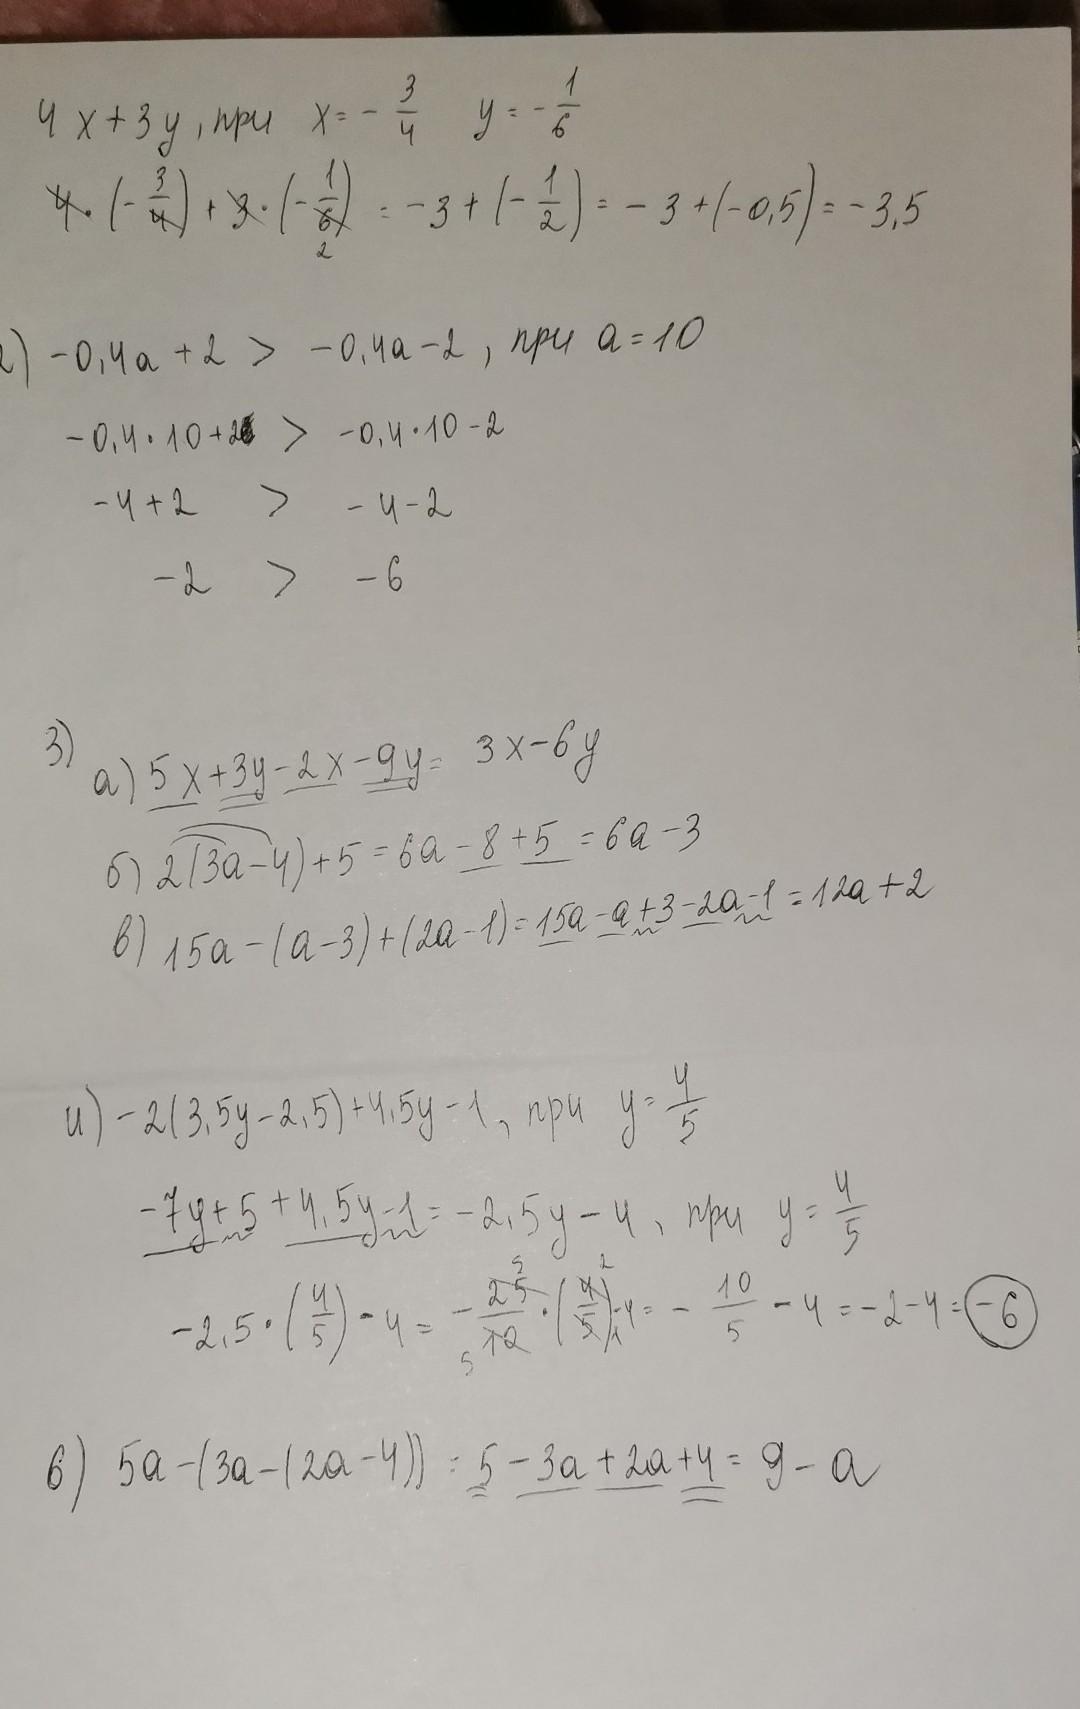 4x+3y, при x=-3/4 y=-1/6
4·(-3/4)+3·(-1/6)=-3+(-1/2)=-3+(-0,5)=-3,5
2) -0,4a+2 > -0,4a-2, при a=10
-0,4·10+2 > -0,4·10-2
-4+2 > -4-2
-2 > -6
3) а) 5x+3y-2x-9y= 3x-6y
б) 2(3a-4)+5=6a-8+5=6a-3
в) 15a-(a-3)+(2a-1)=15a-a+3-2a-1=12a+2
4) -2(3,5y-2,5)+4,5y-1, при y=4/5
-7y+5+4,5y-1=-2,5y-4, при y=4/5
-2,5·(4/5)-4=-25/10·(4/5)-4=-10/5-4=-2-4=-6
6) 5a-(3a-(2a-4))=5-3a+2a+4=9-a